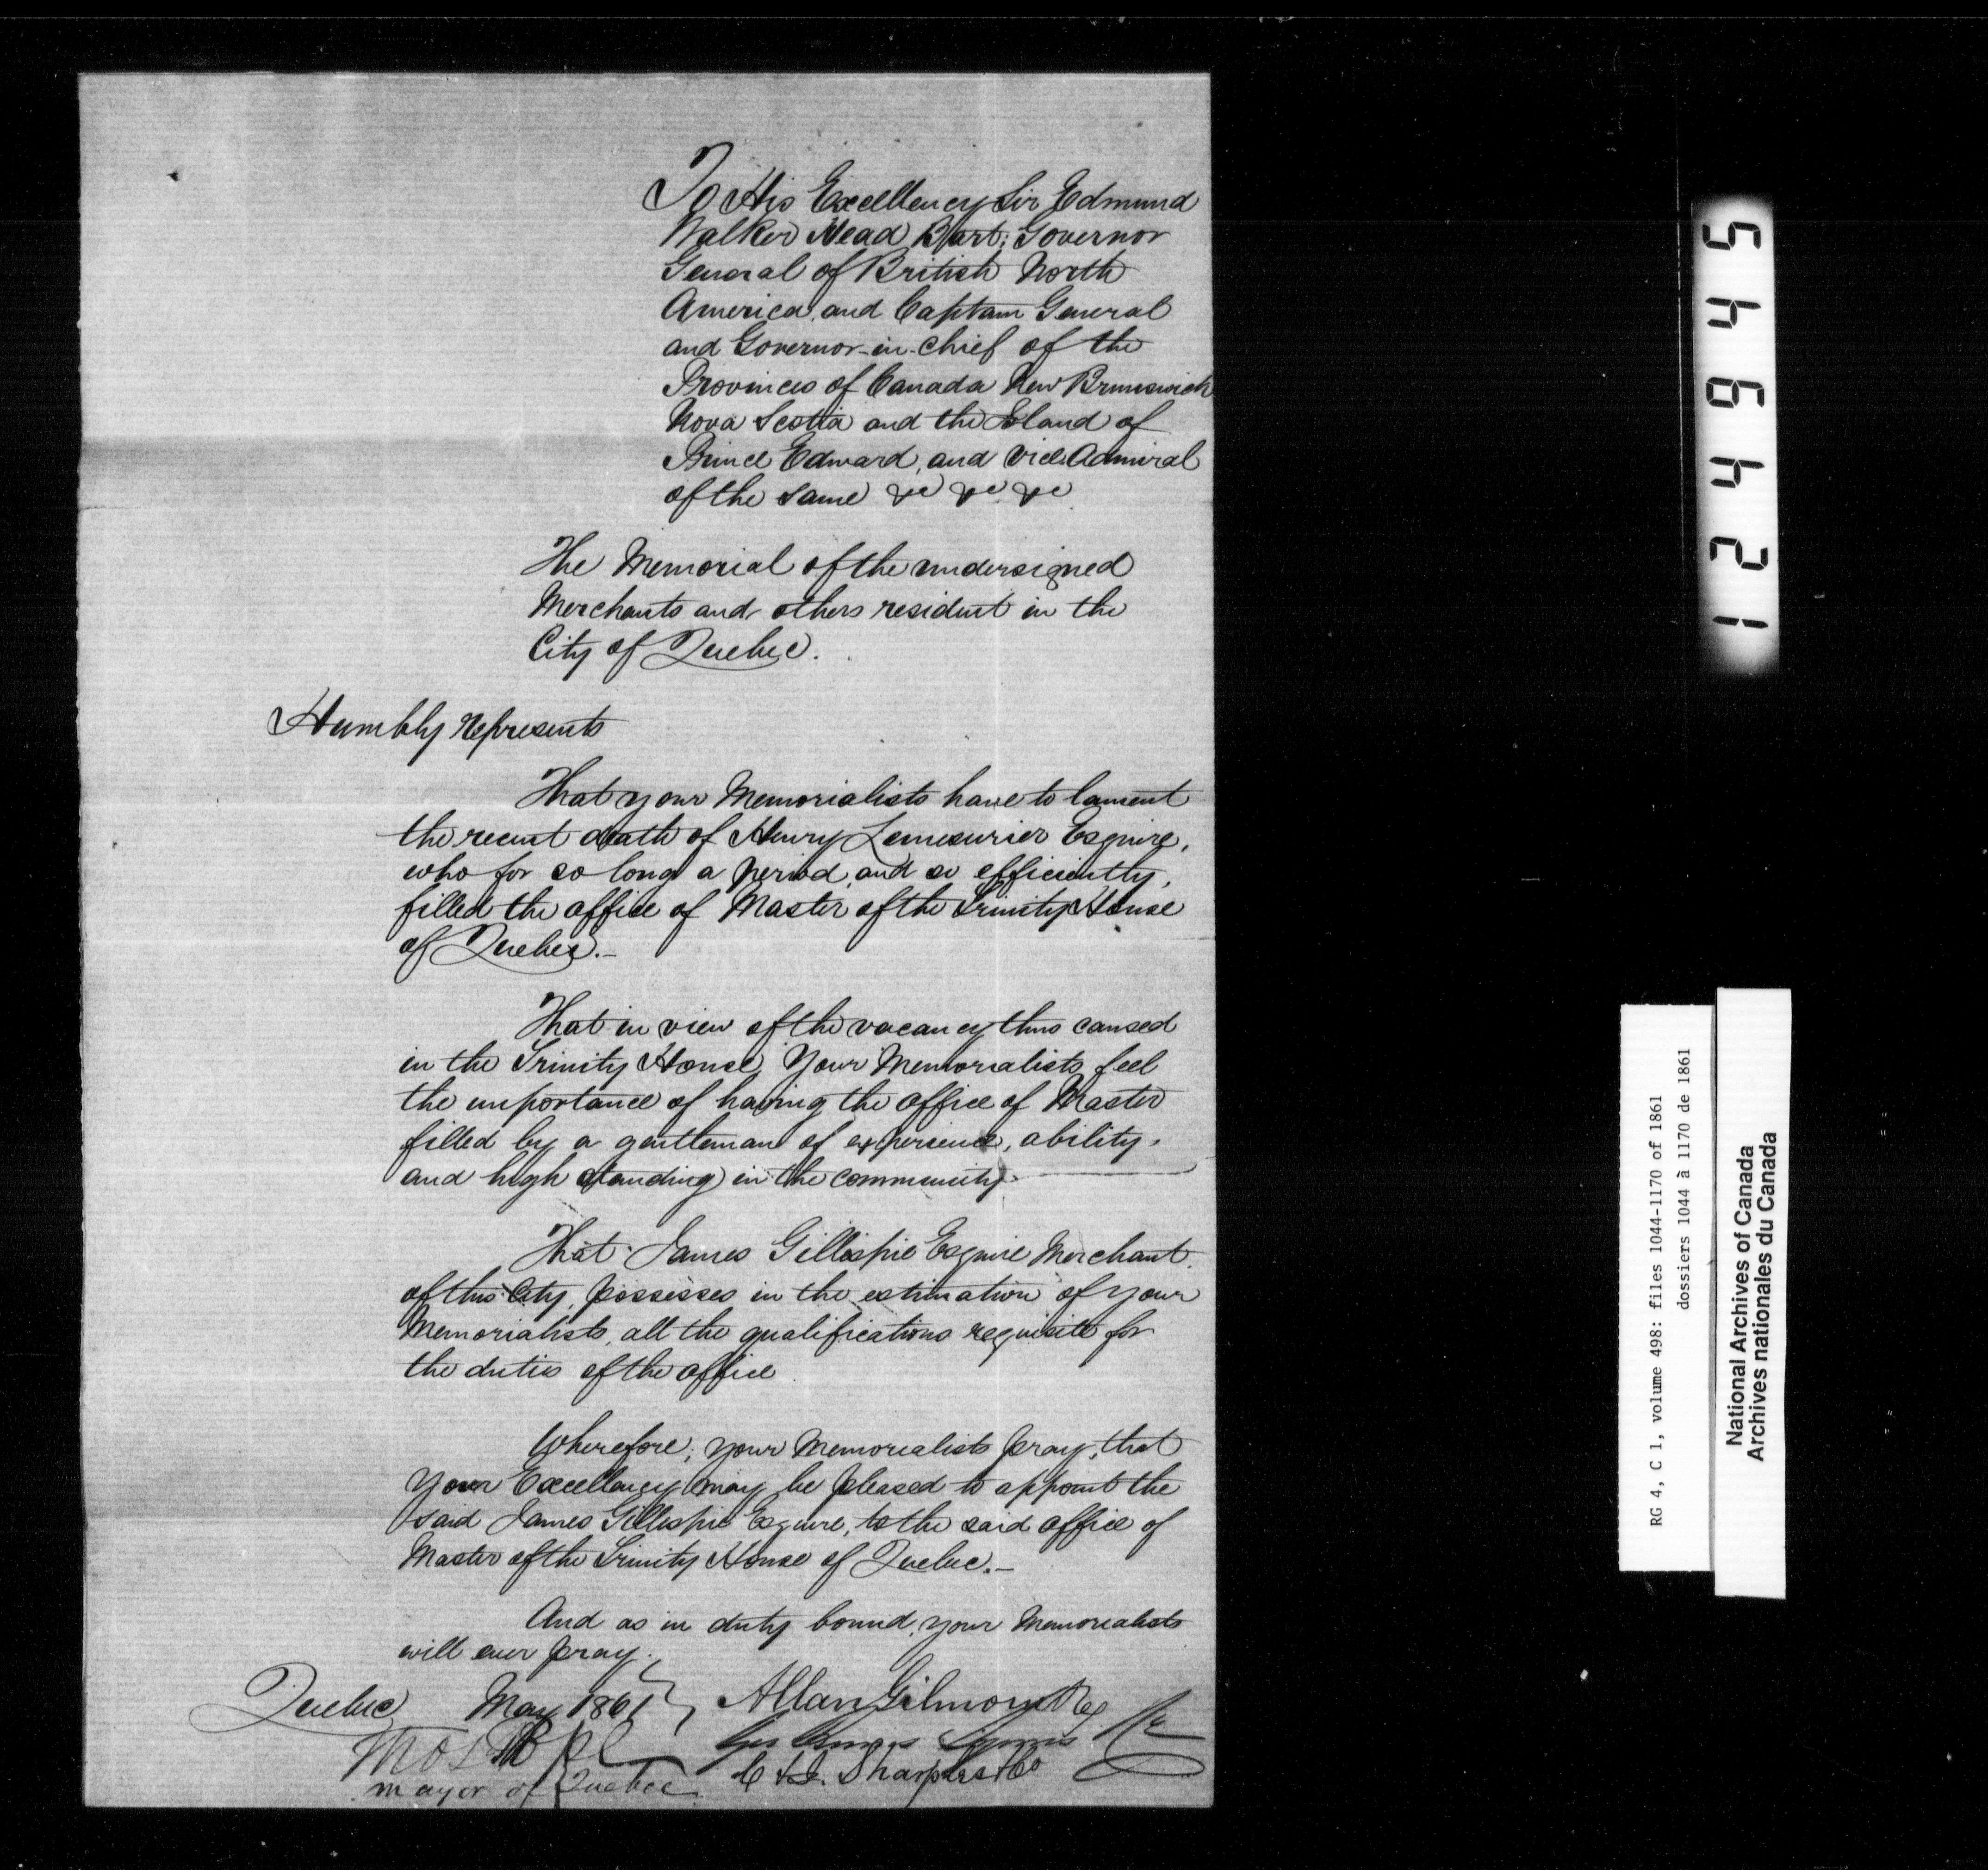 To His Excellency Sir Edmund
Walker Head Bart: Governor
General of British North
America, and Captain General
and Governor-in-chief of the
Provinces of Canada New Brunswick
Nova Scotia and the Island of
Prince Edward, and Vice Admiral
of the same &c &c &c
The Memorial of the undersigned
Merchants and others resident in the
City of Quebec.
Humbly represents
That your Memorialists have to lament
the recent death of Henry Lemesurier Esquire,
who for so long a period, and so efficiently,
filled the office of Master of the Trinity House
of Quebec.-
That in view of the vacancy thus caused
in the Trinity House, Your Memorialists feel
the importance of having the office of Master
filled by a gentleman of experience, ability,
and high standing in the community.
That James Gillespie Esquire Merchant
of this City, possesses in the estimation of your
Memorialists, all the qualifications requisite for
the duties of the office
Wherefore, your Memorialists pray, that
Your Excellency may be pleased to appoint the
said James Gillespie Esquire, to the said office of
Master of the Trinity House of Quebec.-
And as in duty bound, your Memorialists
will ever pray.
Quebec May 1861
Allan Gilmour & Co
Thos Pope
Mayor of Quebec
C & J. Sharples & Co
124645
RG 4, C 1, volume 498: files 1044-1170 of 1861
dossiers 1044 à 1170 de 1861
National Archives of Canada
Archives nationales du Canada